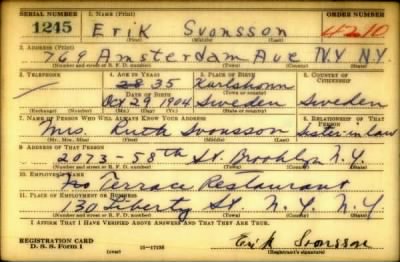 SERIAL NUMBER 1. NAME (Print) ORDER NUMBER
1245 Erik Svonsson 4210
(First) (Middle) (Last)
2. ADDRESS (Print)
769 Amsterdam Ave N.Y N.Y.
(Number and street or R. F. D. number) (Town) (County) (State)
3. TELEPHONE 4. AGE IN YEARS 5. PLACE OF BIRTH 6. COUNTRY OF CITIZENSHIP
35 Karlshamn
DATE OF BIRTH
Oct 29 1904 Sweden Sweden
(Exchange) (Number) (Mo.) (Day) (Yr.) (State or country)
7. NAME OF PERSON WHO WILL ALWAYS KNOW YOUR ADDRESS 8. RELATIONSHIP OF THAT PERSON
Mrs. Ruth Svonsson Sister in law
(Mr., Mrs., Miss) (First) (Middle) (Last)
9. ADDRESS OF THAT PERSON
2073-58th St. Brooklyn N.Y.
(Number and street or R. F. D. number) (Town) (County) (State)
10. EMPLOYER'S NAME
Terrace Restaurant
11. PLACE OF EMPLOYMENT OR BUSINESS
130 Liberty St N.Y. N.Y
(Number and street or R. F. D. number) (Town) (County) (State)
I AFFIRM THAT I HAVE VERIFIED ABOVE ANSWERS AND THAT THEY ARE TRUE.
REGISTRATION CARD
D. S. S. Form 1 (over) 16-17138 Erik Svonsson
(Registrant's signature)